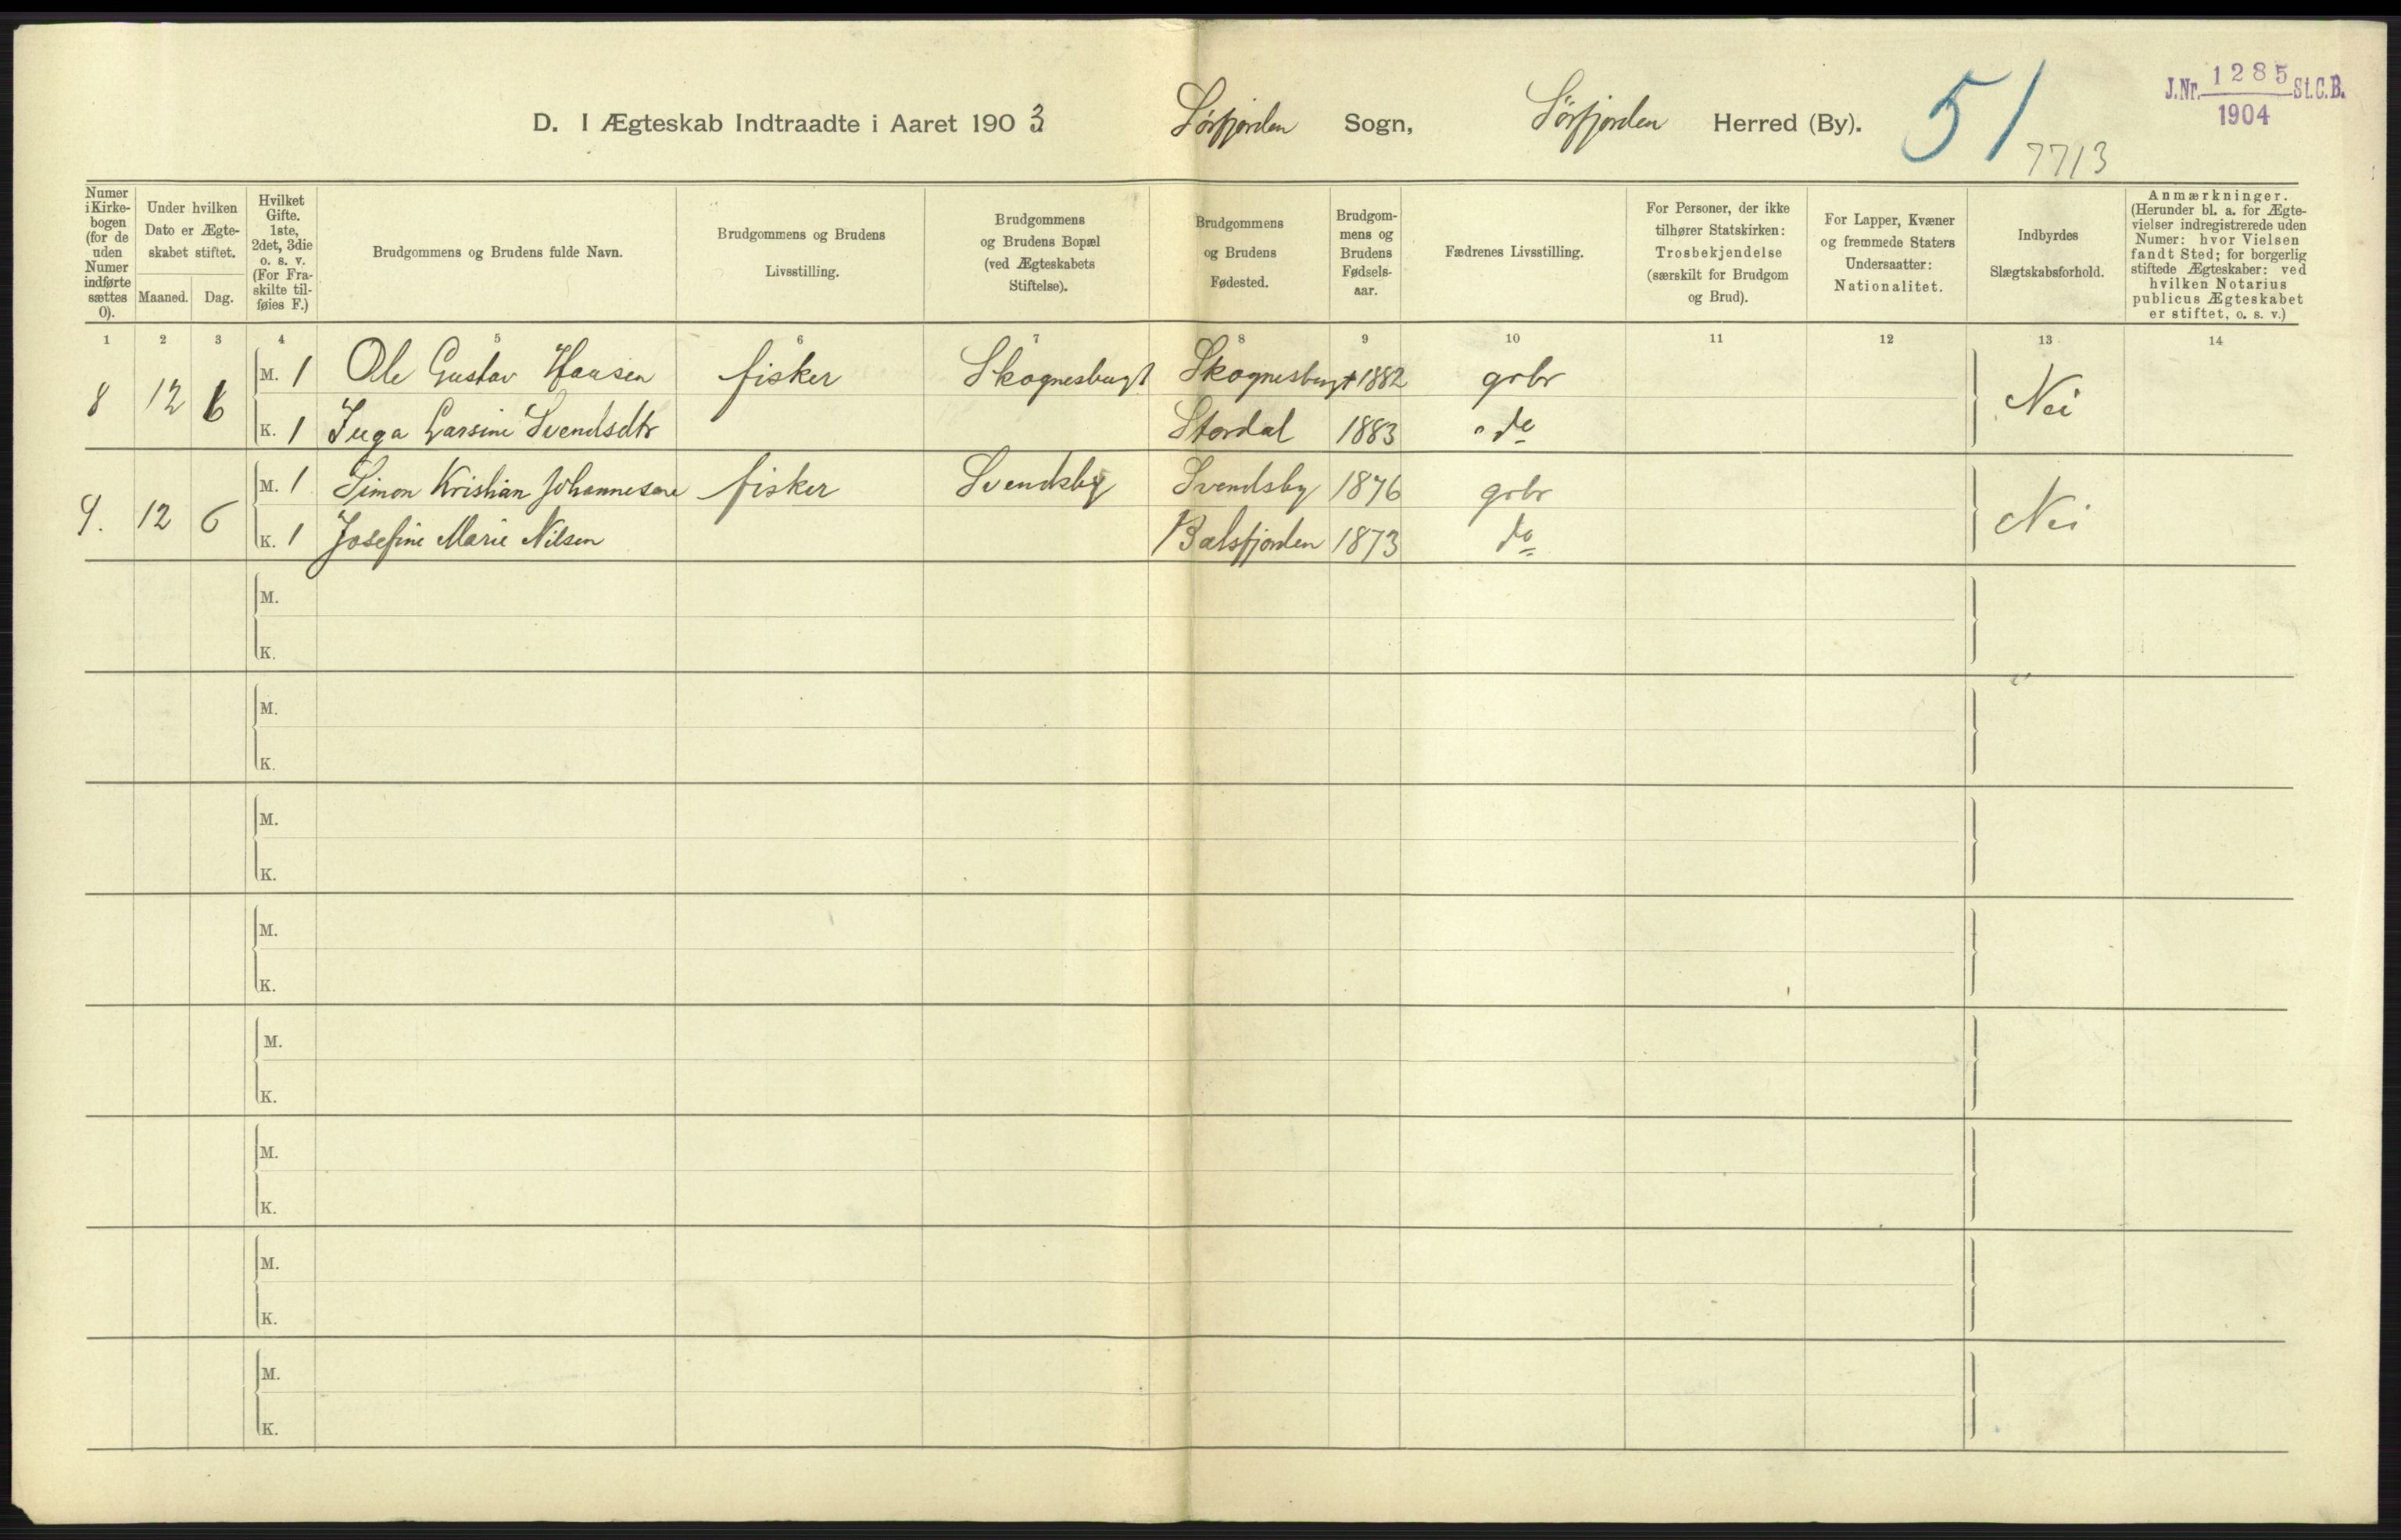 J.Nr. 1285 St.C.B.
1904
51
7713
D. I Ægteskab Indtraadte i Aaret 1903 Sörfjorden Sogn, Sörfjorden Herred (By).
Numer i Kirkebogen (for de uden Numer indførte sættes 0).
Under hvilken Dato er Ægteskabet stiftet.
Maaned. Dag.
Hvilket Gifte. 1ste, 2det, 3die o. s. v. (For Fraskilte tilføies F.)
Brudgommens og Brudens fulde Navn.
Brudgommens og Brudens Livsstilling.
Brudgommens og Brudens Bopæl (ved Ægteskabets Stiftelse).
Brudgommens og Brudens Fødested.
Brudgommens og Brudens Fødselsaar.
Fædrenes Livsstilling.
For Personer, der ikke tilhører Statskirken: Trosbekjendelse (særskilt for Brudgom og Brud).
For Lapper, Kvæner og fremmede Staters Undersaatter: Nationalitet.
Indbyrdes Slægtskabsforhold.
Anmærkninger. (Herunder bl. a. for Ægtevielser indregistrerede uden Numer: hvor Vielsen fandt Sted; for borgerlig stiftede Ægteskaber: ved hvilken Notarius publicus Ægteskabet er stiftet, o. s. v.)
1 2 3 4 5 6 7 8 9 10 11 12 13 14
8 12 6 M. 1 Ole Gustav Hansen fisker Skognesbugt Skognesbugt 1882 grbr Nei
K. 1 Inga Larsine Svendsdtr Stordal 1883 do
9. 12 6 M. 1 Simon Kristian Johannesen fisker Svendsby Svendsby 1876 grbr Nei
K. 1 Josefine Marie Nilsen Balsfjorden 1873 do
M.
K.
M.
K.
M.
K.
M.
K.
M.
K.
M.
K.
M.
K.
M.
K.